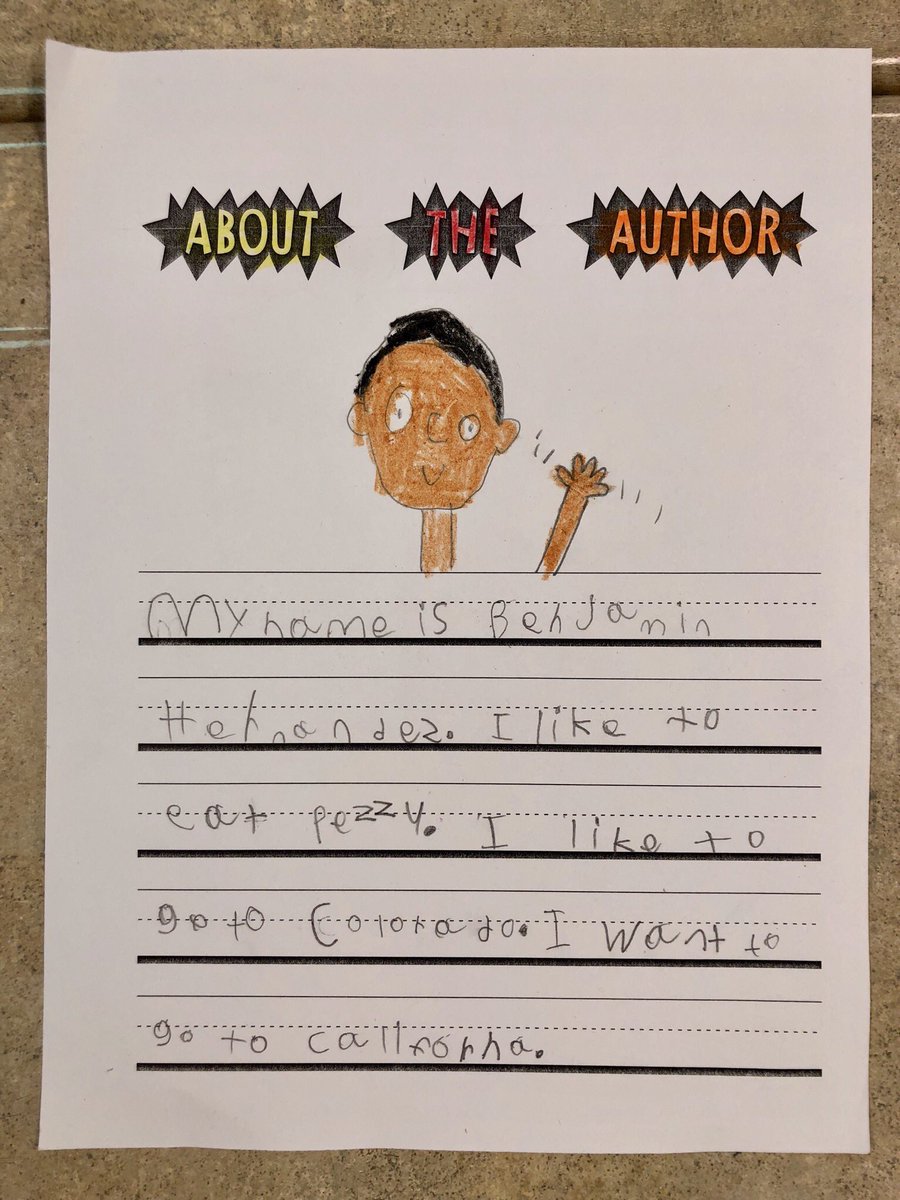 ABOUT THE AUTHOR
My name is Benjamin
Hernandez. I like to
eat pezzy. I like to
go to Colorado. I want to
go to callfornna.